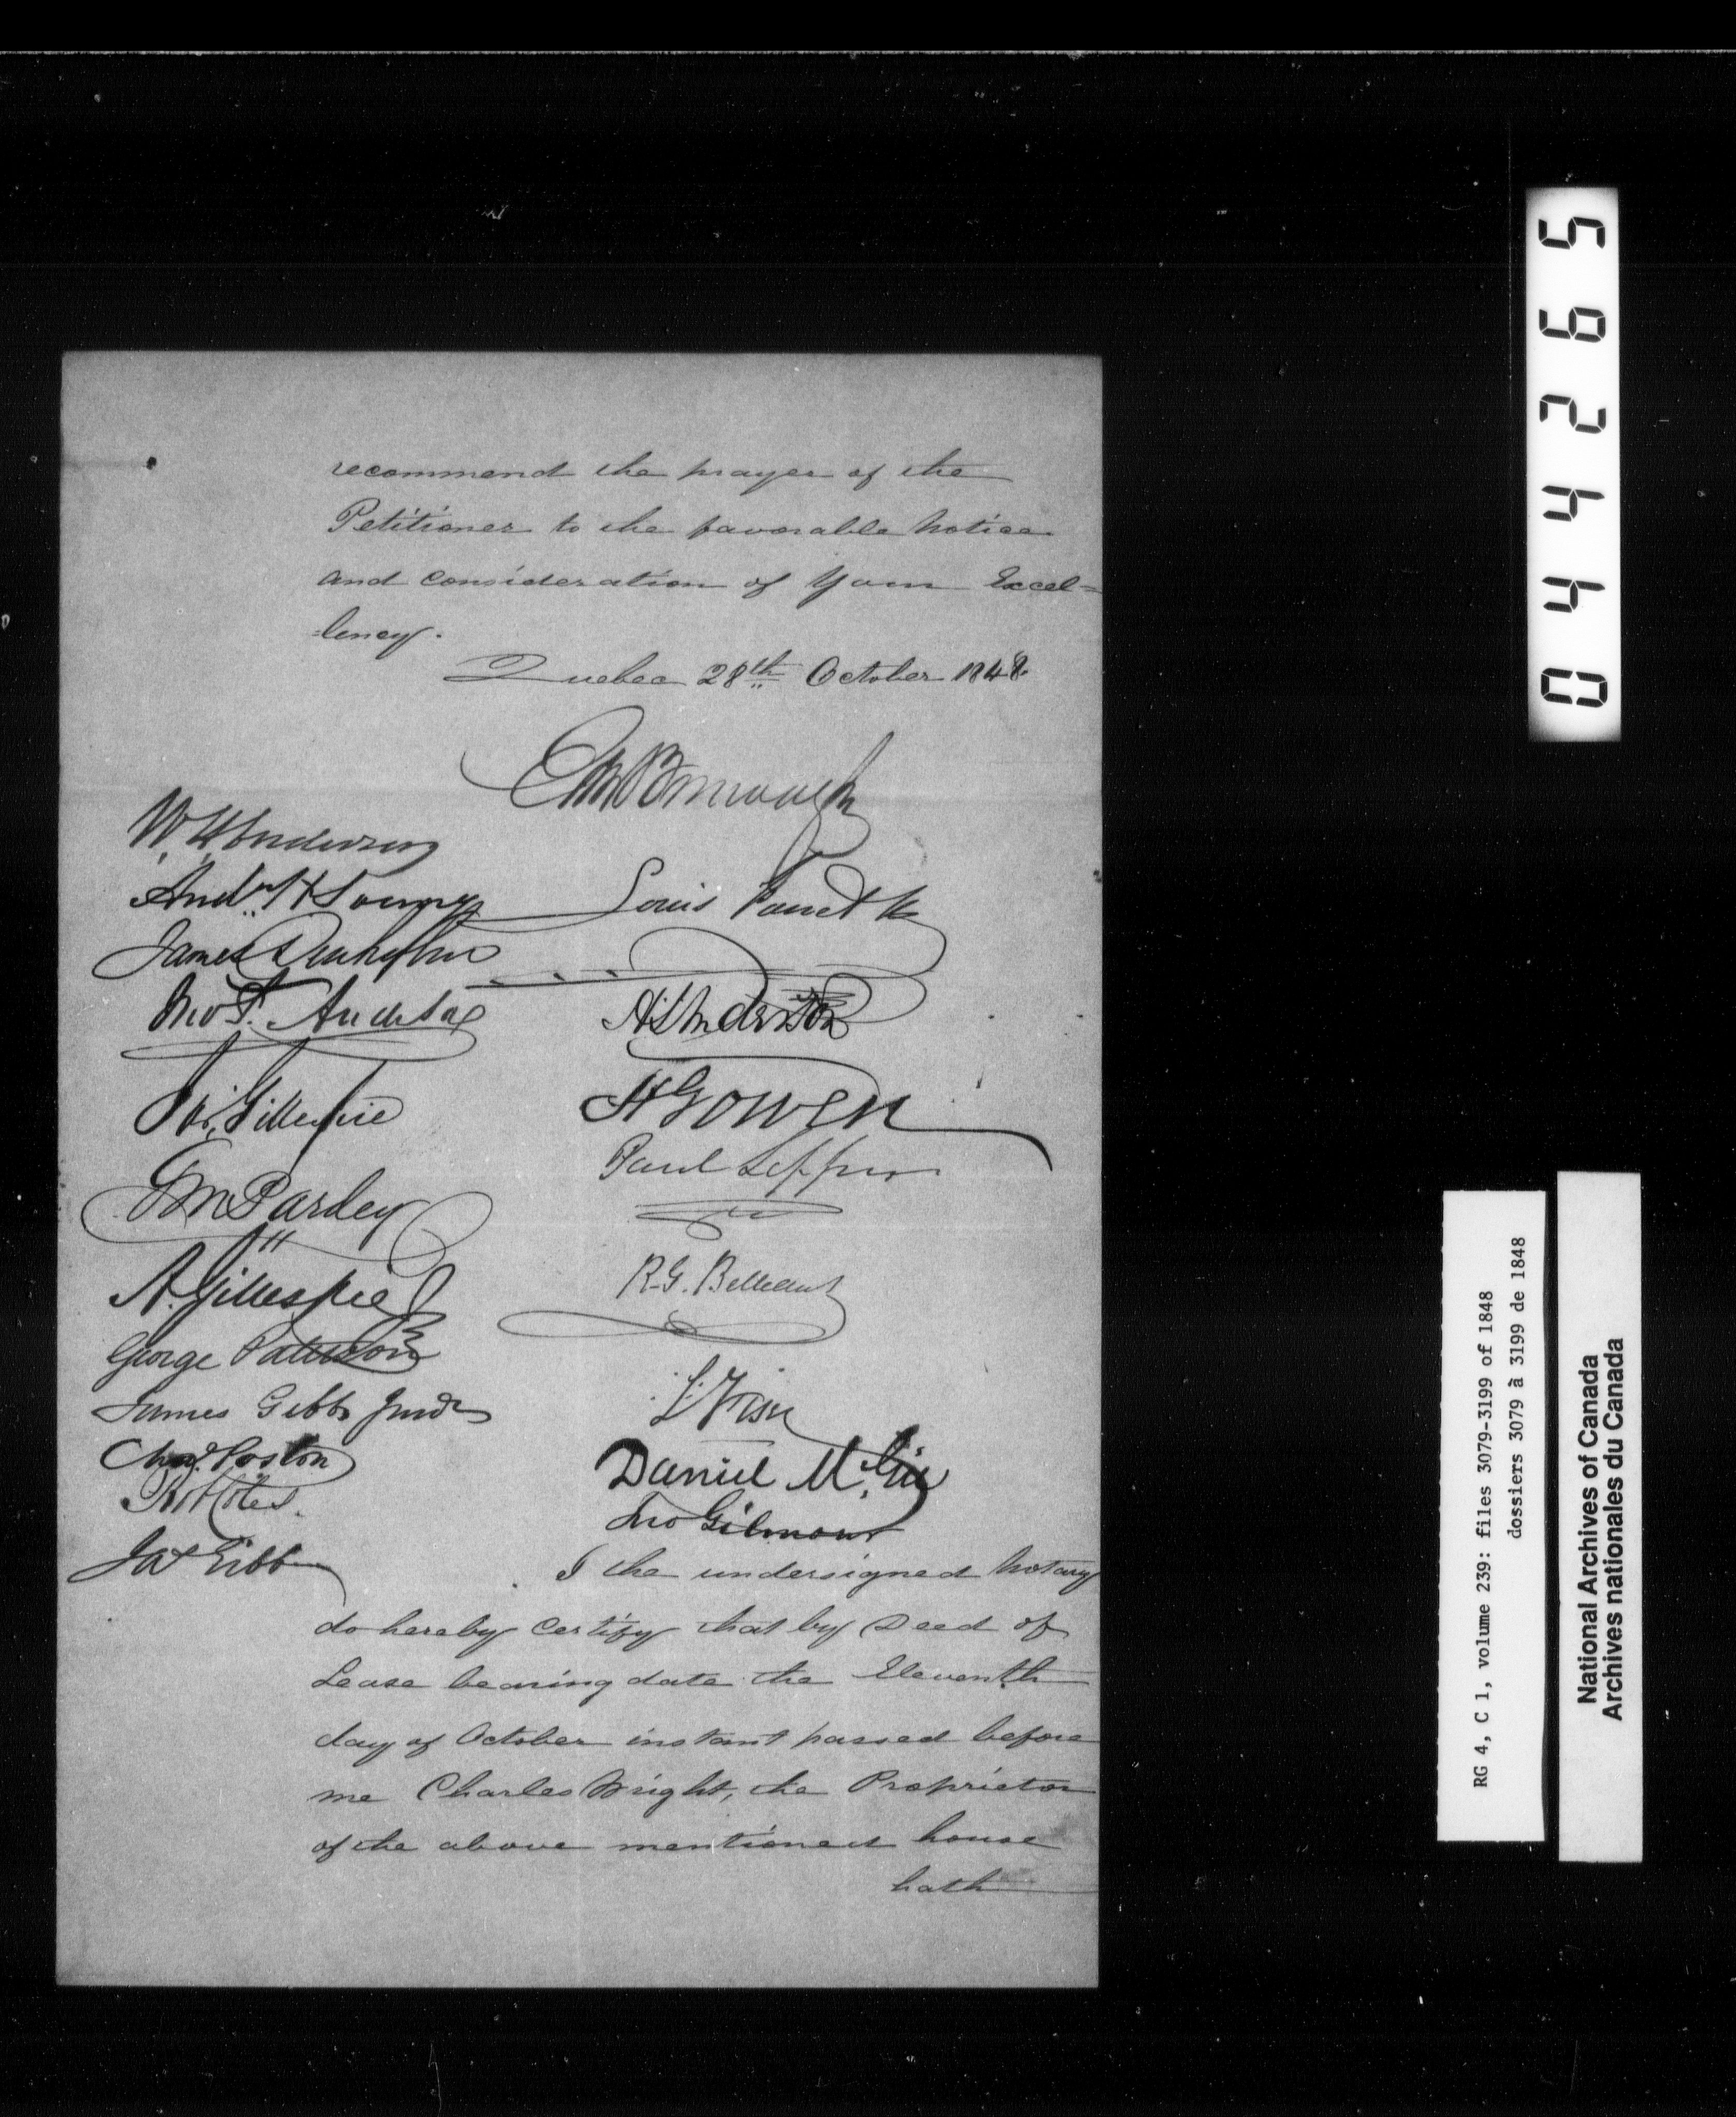 recommend the prayer of the
Petitioner to the favorable notice
and consideration of Your Excel=
=lency.
Quebec 28th October 1848.
W. H. Anderson
Andw. H Young
James
Jno F. Anderson
Gillespie
A. Gillespie
George Patterson
James Gibb Junr
Chas. Poston
Jas Gibb
Louis
A. Anderson
H Gowen
Paul Lepper
R. G. Belleau
Daniel McGie
Jno Gilmour
I the undersigned Notary
do hereby certify that by Deed of
Lease bearing date the Eleventh
day of October instant passed before
me Charles Wright, the Proprietor
of the above mentioned house
hath
0 4 4 2 6 5
RG 4, C 1, volume 239: files 3079-3199 of 1848
dossiers 3079 à 3199 de 1848
National Archives of Canada
Archives nationales du Canada